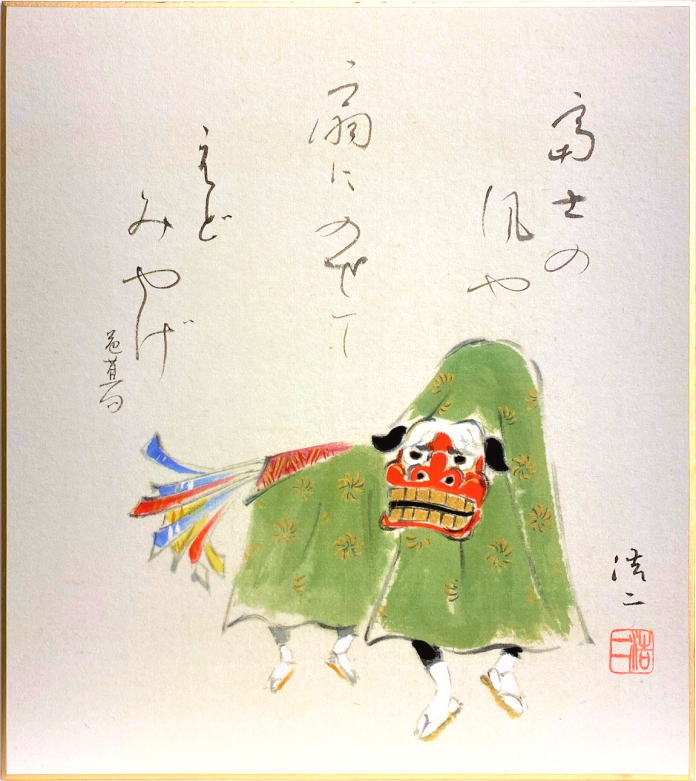 富士の
風や
扇にのせて
えど
みやげ
芭蕉句
浩二
浩二